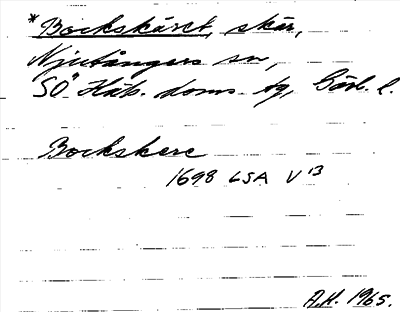 *Bockskäret, skär,
Njutångers sn,
SÖ Häls. doms. tg, Gävl. l.
Bockskere
1698 LSA V 13
A.H. 1965.